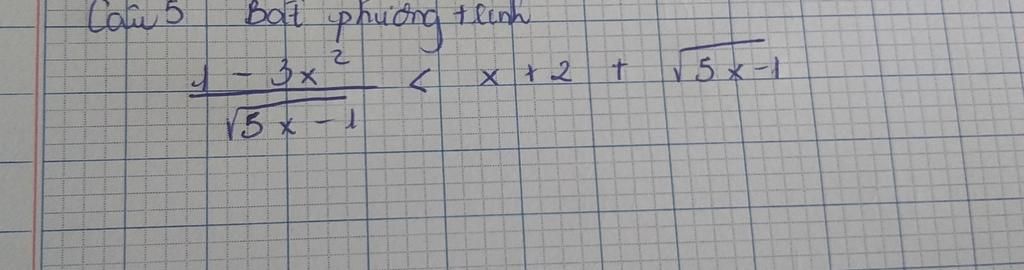 Câu 5 Bất phương trình
\frac{1 - 3x^2}{\sqrt{5x - 1}} < x + 2 + \sqrt{5x - 1}